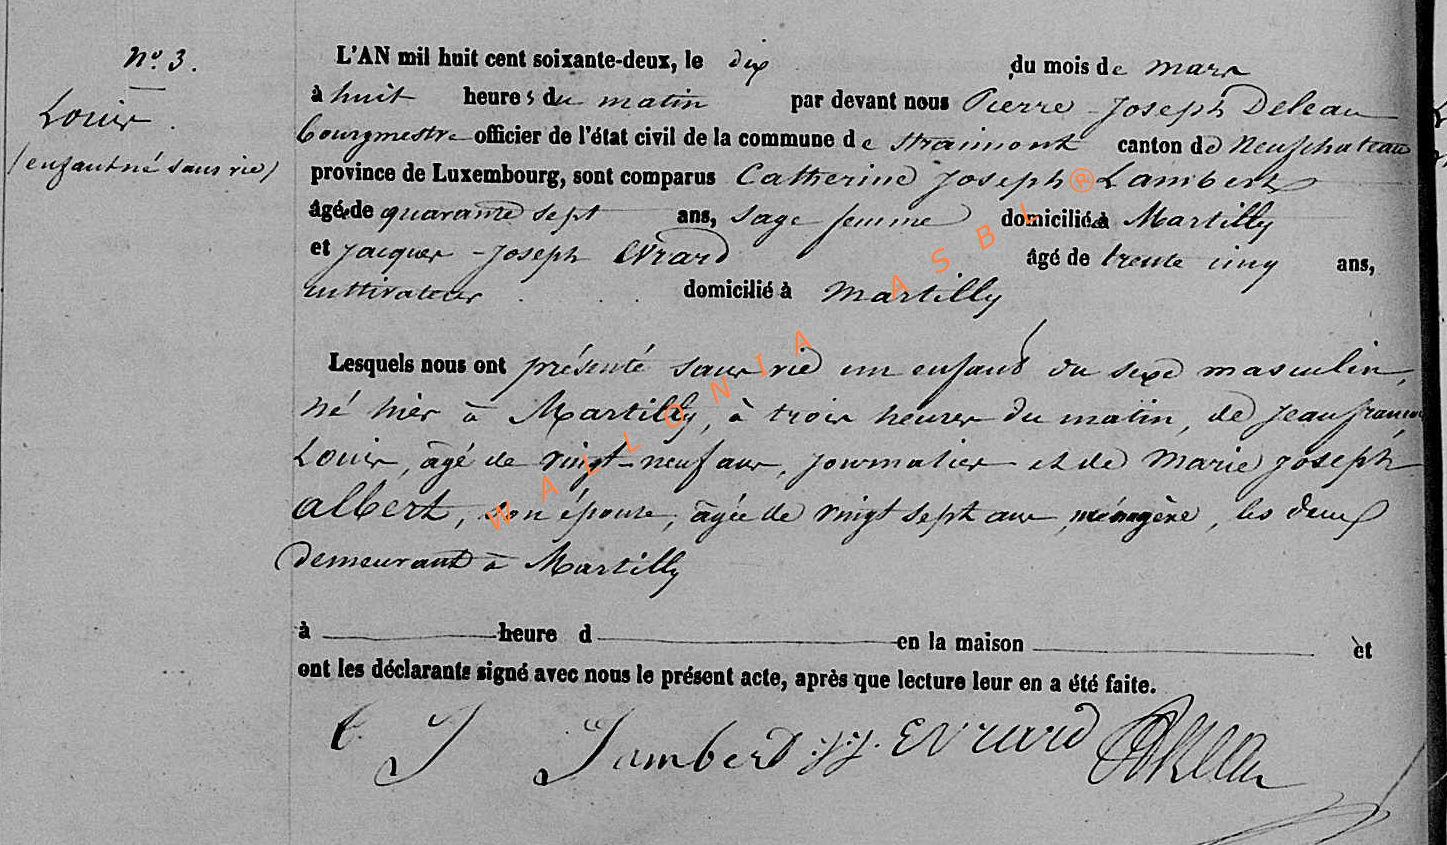 N.° 3.
Louis.
(enfant né sans vie)
L'AN mil huit cent soixante-deux, le dix du mois de mars
à huit heures du matin par devant nous Pierre-Joseph Deleau
bourgmestre officier de l'état civil de la commune de Straimont canton de Neufchateau
province de Luxembourg, sont comparus Catherine Joseph Lambert
âgée de quarante sept ans, sage femme domiciliée à Martilly
et Jacques-Joseph Evrard âgé de trente cinq ans,
cultivateur domicilié à Martilly
Lesquels nous ont présenté sans vie un enfant du sexe masculin,
né hier à Martilly, à trois heures du matin, de Jean françois
Louis, âgé de vingt-neuf ans, journalier et de Marie Joseph
Albert, son épouse, âgée de vingt sept ans, ménagère, les deux
demeurant à Martilly
à heure d en la maison et
ont les déclarants signé avec nous le présent acte, après que lecture leur en a été faite.
C J Lambert J.J. Evrard
WALLONIA ASBL ®